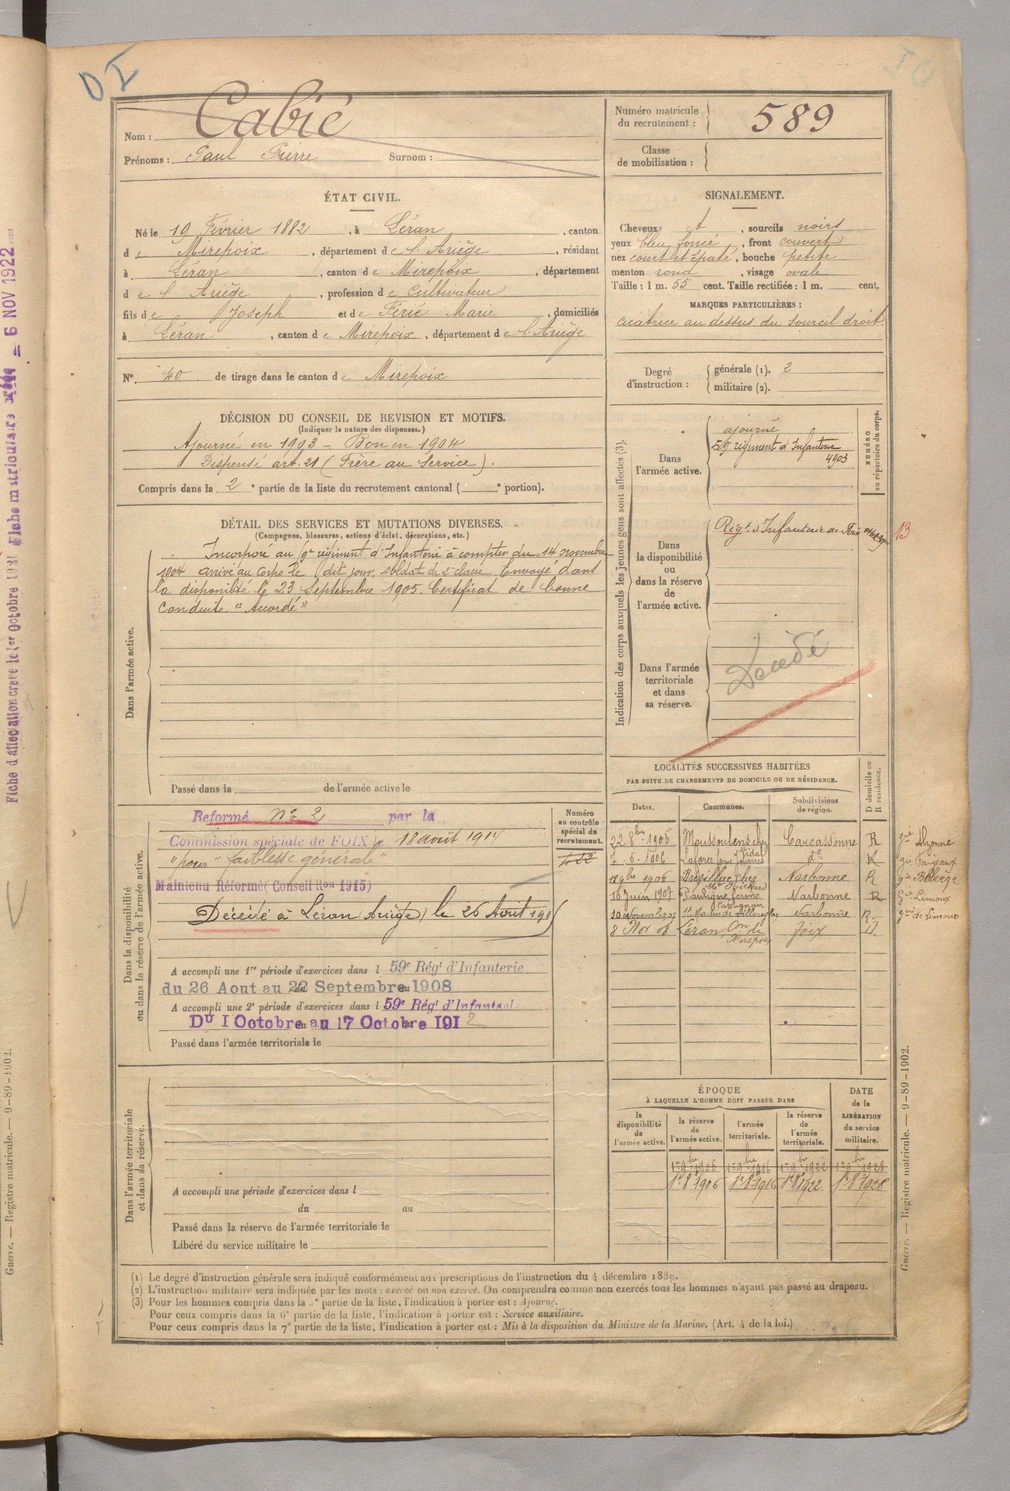 Nom : Cabié
Prénoms : Paul Pierre Surnom :
Numéro matricule du recrutement : 589
Classe de mobilisation :
ÉTAT CIVIL.
Né le 19 Février 1882, à Léran, canton
de Mirepoix, département de l'Ariège, résidant
à Léran, canton de Mirepoix, département
de l'Ariège, profession de Cultivateur
fils de Joseph et de Férié Marie, domiciliés
à Léran, canton de Mirepoix, département de l'Ariège
N° 40 de tirage dans le canton de Mirepoix
SIGNALEMENT.
Cheveux et, sourcils noirs
yeux bleu foncé, front couvert
nez court et épaté, bouche petite
menton rond, visage ovale
Taille : 1 m. 65 cent. Taille rectifiée : 1 m. cent.
MARQUES PARTICULIÈRES :
cicatrice au dessus du sourcil droit
Degré d'instruction :
générale (1). 2
militaire (2).
DÉCISION DU CONSEIL DE REVISION ET MOTIFS.
(Indiquer la nature des dispenses.)
Ajourné en 1903 - Bon en 1904
Dispensé art. 21 (Frère au Service).
Compris dans la 2e partie de la liste du recrutement cantonal ( e portion).
DÉTAIL DES SERVICES ET MUTATIONS DIVERSES.
(Campagnes, blessures, actions d'éclat, décorations, etc.)
Dans l'armée active.
Incorporé au 9e régiment d'Infanterie à compter du 14 novembre
1904 arrivé au Corps le dit jour, soldat de 2e classe. Envoyé dans
la disponibilité le 23 Septembre 1905. Certificat de bonne
conduite "Accordé"
Passé dans la de l'armée active le
Indication des corps auxquels les jeunes gens sont affectés (3).
NUMÉRO au répertoire du corps.
Dans l'armée active.
ajourné
régiment d'Infanterie
4903
Dans la disponibilité ou dans la réserve de l'armée active.
Régt d'Infanterie de Foix
13
Dans l'armée territoriale et dans sa réserve.
Décédé
Dans la disponibilité ou dans la réserve de l'armée active.
Numéro au contrôle spécial du recrutement.
Reformé n° 2 par la
Commission spéciale de FOIX le 18 août 1914
"pour" faiblesse générale"
Maintenu Réformé (Conseil Ron 1915)
Décédé à Léran (Ariège) le 26 Août
A accompli une 1re période d'exercices dans l 59e Régt d'Infanterie
du 26 Aout au 22 Septembre 1908
A accompli une 2e période d'exercices dans l 59e Régt d'Infanterie
Du 1 Octobre au 17 Octobre 1912
Passé dans l'armée territoriale le
LOCALITÉS SUCCESSIVES HABITÉES
PAR SUITE DE CHANGEMENTS DE DOMICILE OU DE RÉSIDENCE.
Dates. Communes. Subdivisions de région. D domicile ou R résidence.
22 8bre 1905 Moussoulens Carcassonne R Alzonne
Laforce do R Fanjeaux
1906 Narbonne R Belberge
16 juin 1907 Narbonne R Limoux
10 novembre 1907 St Martin de Villereglan Narbonne R de Limoux
8 Nov 08 Léran Con de Mirepoix Foix D.
Dans l'armée territoriale et dans sa réserve.
A accompli une période d'exercices dans l
du au
Passé dans la réserve de l'armée territoriale le
Libéré du service militaire le
ÉPOQUE
À LAQUELLE L'HOMME DOIT PASSER DANS
DATE de la LIBÉRATION du service militaire.
la disponibilité de l'armée active. la réserve de l'armée active. l'armée territoriale. la réserve de l'armée territoriale.
1er 8bre 1906 1er 8bre 1916 1er 8bre 1922 1er 8bre 1928
(1) Le degré d'instruction générale sera indiqué conformément aux prescriptions de l'instruction du 4 décembre 1889.
(2) L'instruction militaire sera indiquée par les mots : exercé ou non exercé. On comprendra comme non exercés tous les hommes n'ayant pas passé au drapeau.
(3) Pour les hommes compris dans la partie de la liste, l'indication à porter est : Ajourné.
Pour ceux compris dans la 6e partie de la liste, l'indication à porter est : Service auxiliaire.
Pour ceux compris dans la 7e partie de la liste, l'indication à porter est : Mis à la disposition du Ministre de la Marine. (Art. 4 de la loi.)
Guerre. — Registre matricule. — 9-89-1902.
Guerre. — Registre matricule. — 9-89-1902.
6 NOV 1922